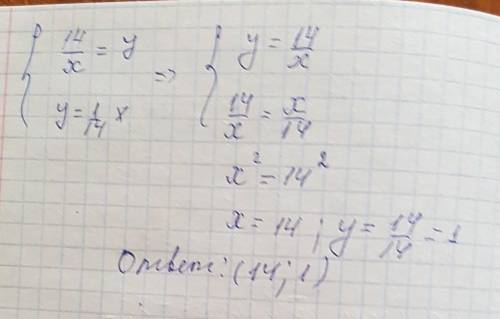 { 14/x = y => { y = 14/x
y = 1/14 x 14/x = x/14
x² = 14²
x = 14 ; y = 14/14 = 1
Ответ: (14; 1)